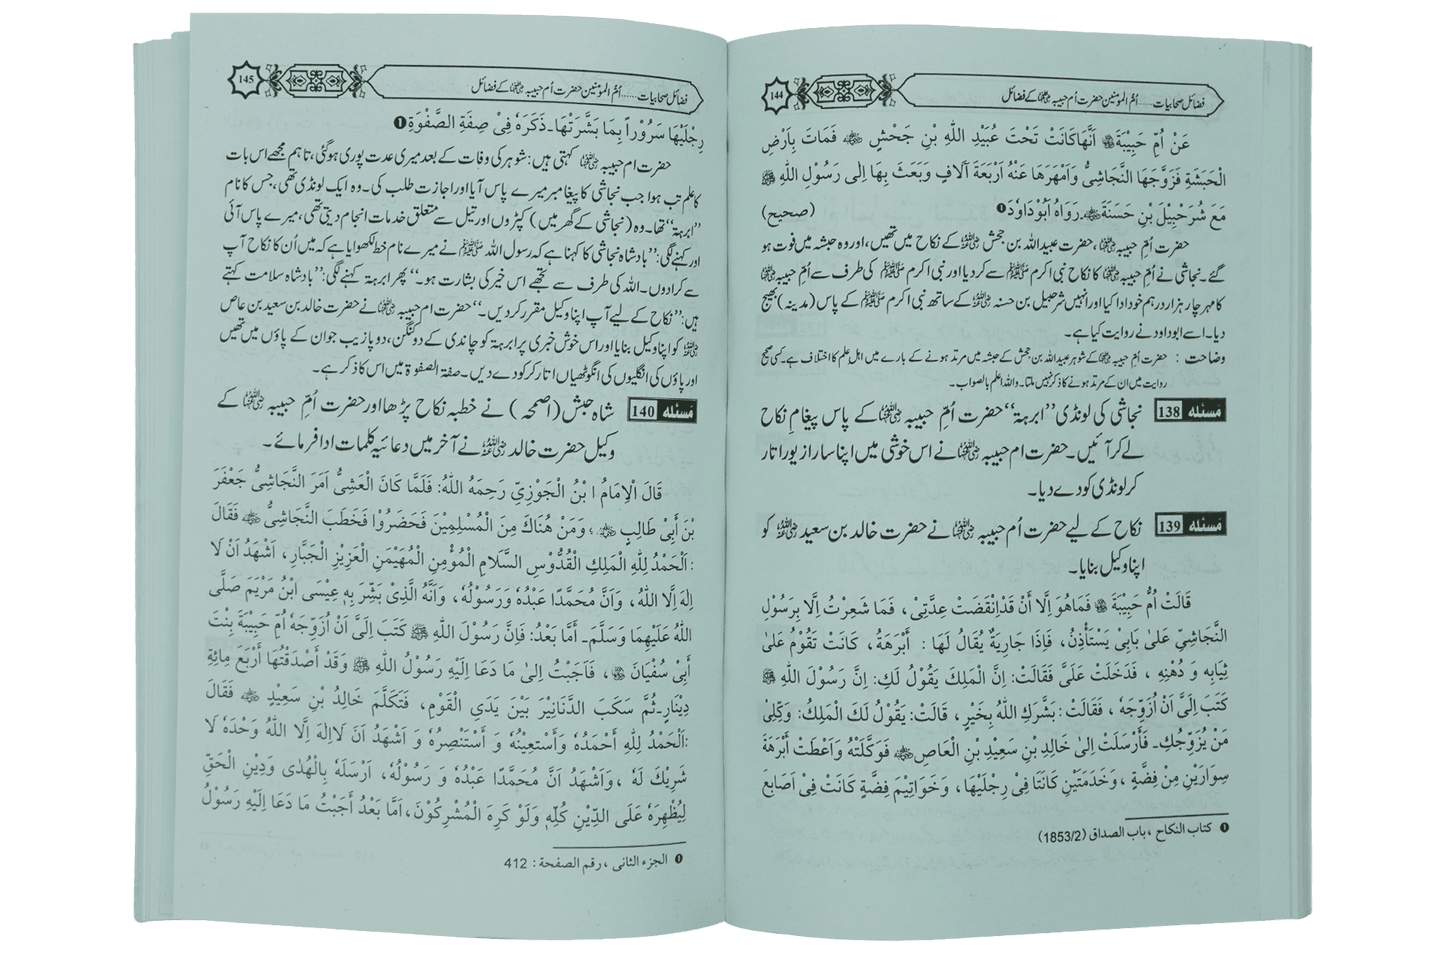 144
فضائل صحابیات ...... اُم المؤمنین حضرت اُم حبیبہ رضی اللہ عنہا کے فضائل
عَنْ اُمِّ حَبِیْبَۃَ رضی اللہ عنہا اَنَّھَا کَانَتْ تَحْتَ عُبَیْدِ اللّٰہِ بْنِ جَحْشٍ رضی اللہ عنہ فَمَاتَ بِاَرْضِ
الْحَبَشَۃِ فَزَوَّجَھَا النَّجَاشِیُّ وَاَمْھَرَھَا عَنْہُ اَرْبَعَۃَ آلَافٍ وَبَعَثَ بِھَا اِلٰی رَسُوْلِ اللّٰہِ ﷺ
مَعَ شُرَحْبِیْلَ بْنِ حَسَنَۃَ رضی اللہ عنہ۔ رَوَاہُ اَبُوْدَاوٗدَ ❶ (صحیح)
حضرت اُمِّ حبیبہ رضی اللہ عنہا، حضرت عبیداللہ بن جحش رضی اللہ عنہ کے نکاح میں تھیں، اور وہ حبشہ میں فوت ہو
گئے۔ نجاشی نے اُمِّ حبیبہ رضی اللہ عنہا کا نکاح نبی اکرم ﷺ سے کر دیا اور نبی اکرم ﷺ کی طرف سے اُمِّ حبیبہ رضی اللہ عنہا
کا مہر چار ہزار درہم خود ادا کیا اور انہیں شرحبیل بن حسنہ رضی اللہ عنہ کے ساتھ نبی اکرم ﷺ کے پاس (مدینہ) بھیج
دیا۔ اسے ابوداود نے روایت کیا ہے۔
وضاحت : حضرت اُمِّ حبیبہ رضی اللہ عنہا کے شوہر عبیداللہ بن جحش کے حبشہ میں مرتد ہونے کے بارے میں اہل علم کا اختلاف ہے۔ کسی صحیح
روایت میں ان کے مرتد ہونے کا ذکر نہیں ملتا۔ واللہ اعلم بالصواب۔
مسئلہ 138 نجاشی کی لونڈی ”ابرہۃ“ حضرت اُمِّ حبیبہ رضی اللہ عنہا کے پاس پیغامِ نکاح
لے کر آئیں۔ حضرت ام حبیبہ رضی اللہ عنہا نے اس خوشی میں اپنا سارا زیور اتار
کر لونڈی کو دے دیا۔
مسئلہ 139 نکاح کے لیے حضرت اُم حبیبہ رضی اللہ عنہا نے حضرت خالد بن سعید رضی اللہ عنہ کو
اپنا وکیل بنایا۔
قَالَتْ اُمُّ حَبِیْبَۃَ رضی اللہ عنہا فَمَاھُوَ اِلَّا أَنْ قَدِ انْقَضَتْ عِدَّتِیْ، فَمَا شَعِرْتُ اِلَّا بِرَسُوْلِ
النَّجَاشِیِّ عَلٰی بَابِیْ یَسْتَأْذِنُ، فَاِذَا جَارِیَۃٌ یُقَالُ لَھَا : أَبْرَھَۃُ، کَانَتْ تَقُوْمُ عَلٰی
ثِیَابِہٖ وَ دُھْنِہٖ ، فَدَخَلَتْ عَلَیَّ فَقَالَتْ: اِنَّ الْمَلِکَ یَقُوْلُ لَکِ: اِنَّ رَسُوْلَ اللّٰہِ ﷺ
کَتَبَ اِلَیَّ اَنْ اُزَوِّجَہٗ ، فَقَالَتْ: بَشَّرَکِ اللّٰہُ بِخَیْرٍ، قَالَتْ: یَقُوْلُ لَکَ الْمَلِکُ: وَکِّلِیْ
مَنْ یُزَوِّجُکِ۔ فَأَرْسَلَتْ اِلٰی خَالِدِ بْنِ سَعِیْدِ بْنِ الْعَاصِ رضی اللہ عنہ فَوَکَّلَتْہُ وَاَعْطَتْ أَبْرَھَۃَ
سِوَارَیْنِ مِنْ فِضَّۃٍ ، وَخَدَمَتَیْنِ کَانَتَا فِیْ رِجْلَیْھَا ، وَخَوَاتِیْمَ فِضَّۃٍ کَانَتْ فِیْ اَصَابِعَ
❶ کتاب النکاح ، باب الصداق (1853/2)
145
فضائل صحابیات ...... اُم المؤمنین حضرت اُم حبیبہ رضی اللہ عنہا کے فضائل
رِجْلَیْھَا سَرُوْراً بِمَا بَشَّرَتْھَا۔ ذَکَرَہٗ فِیْ صِفَۃِ الصَّفْوَۃِ ❶
حضرت ام حبیبہ رضی اللہ عنہا کہتی ہیں: شوہر کی وفات کے بعد میری عدت پوری ہوگئی، تاہم مجھے اس بات
کا علم تب ہوا جب نجاشی کا پیغامبر میرے پاس آیا اور اجازت طلب کی۔ وہ ایک لونڈی تھی، جس کا نام
”ابرہۃ“ تھا۔ وہ (نجاشی کے گھر میں) کپڑوں اور تیل سے متعلق خدمات انجام دیتی تھی، میرے پاس آئی
اور کہنے لگی: ”بادشاہ نجاشی کا کہنا ہے کہ رسول اللہ ﷺ نے میرے نام خط لکھوایا ہے کہ میں اُن کا نکاح آپ
سے کرادوں۔ اللہ کی طرف سے تجھے اس خیر کی بشارت ہو۔“ پھر ابرہۃ کہنے لگی: ”بادشاہ سلامت کہتے
ہیں: ”نکاح کے لیے آپ اپنا وکیل مقرر کر دیں۔“ حضرت ام حبیبہ رضی اللہ عنہا نے حضرت خالد بن سعید بن عاص
رضی اللہ عنہ کو اپنا وکیل بنایا اور اس خوش خبری پر ابرہۃ کو چاندی کے دو کنگن، دو پازیب جو ان کے پاؤں میں تھیں
اور پاؤں کی انگلیوں کی انگوٹھیاں اتار کر کو دے دیں۔ صفۃ الصفوۃ میں اس کا ذکر ہے۔
مسئلہ 140 شاہ حبش (اصمحہ) نے خطبہ نکاح پڑھا اور حضرت اُمِّ حبیبہ رضی اللہ عنہا کے
وکیل حضرت خالد رضی اللہ عنہ نے آخر میں دعائیہ کلمات ادا فرمائے۔
قَالَ الْاِمَامُ ابْنُ الْجَوْزِیِّ رَحِمَہُ اللّٰہُ: فَلَمَّا کَانَ الْعَشِیُّ اَمَرَ النَّجَاشِیُّ جَعْفَرَ
بْنَ اَبِیْ طَالِبٍ رضی اللہ عنہ ؛ وَمَنْ ھُنَاکَ مِنَ الْمُسْلِمِیْنَ فَحَضَرُوْا فَخَطَبَ النَّجَاشِیُّ رضی اللہ عنہ فَقَالَ
:اَلْحَمْدُ لِلّٰہِ الْمَلِکِ الْقُدُّوْسِ السَّلَامِ الْمُؤْمِنِ الْمُھَیْمَنِ الْعَزِیْزِ الْجَبَّارِ، اَشْھَدُ اَنْ لَا
اِلٰہَ اِلَّا اللّٰہُ، وَاَنَّ مُحَمَّدًا عَبْدُہٗ وَرَسُوْلُہٗ ، وَاَنَّہُ الَّذِیْ بَشَّرَ بِہٖ عِیْسَی ابْنُ مَرْیَمَ صَلَّی
اللّٰہُ عَلَیْھِمَا وَسَلَّمَ۔ أَمَّا بَعْدُ: فَاِنَّ رَسُوْلَ اللّٰہِ ﷺ کَتَبَ اِلَیَّ اَنْ اُزَوِّجَہٗ اُمَّ حَبِیْبَۃَ بِنْتَ
اَبِیْ سُفْیَانَ رضی اللہ عنہا ، فَاَجَبْتُ اِلٰی مَا دَعَا اِلَیْہِ رَسُوْلُ اللّٰہِ ﷺ وَقَدْ اَصْدَقْتُھَا اَرْبَعَ مِائَۃِ
دِیْنَارٍ۔ ثُمَّ سَکَبَ الدَّنَانِیْرَ بَیْنَ یَدَیِ الْقَوْمِ، فَتَکَلَّمَ خَالِدُ بْنِ سَعِیْدٍ رضی اللہ عنہ فَقَالَ
:اَلْحَمْدُ لِلّٰہِ اَحْمَدُہٗ وَاَسْتَعِیْنُہٗ وَ اَسْتَنْصِرُہٗ وَ اَشْھَدُ اَنَ لَا اِلٰہَ اِلَّا اللّٰہُ وَحْدَہٗ لَا
شَرِیْکَ لَہٗ ، وَاَشْھَدُ اَنَّ مُحَمَّدًا عَبْدُہٗ وَ رَسُوْلُہٗ، اَرْسَلَہٗ بِالْھُدٰی وَدِیْنِ الْحَقِّ
لِیُظْھِرَہٗ عَلَی الدِّیْنِ کُلِّہٖ وَلَوْ کَرِہَ الْمُشْرِکُوْنَ، اَمَّا بَعْدُ اَجَبْتُ مَا دَعَا اِلَیْہِ رَسُوْلُ
❶ الجزء الثانی ، رقم الصفحۃ : 412